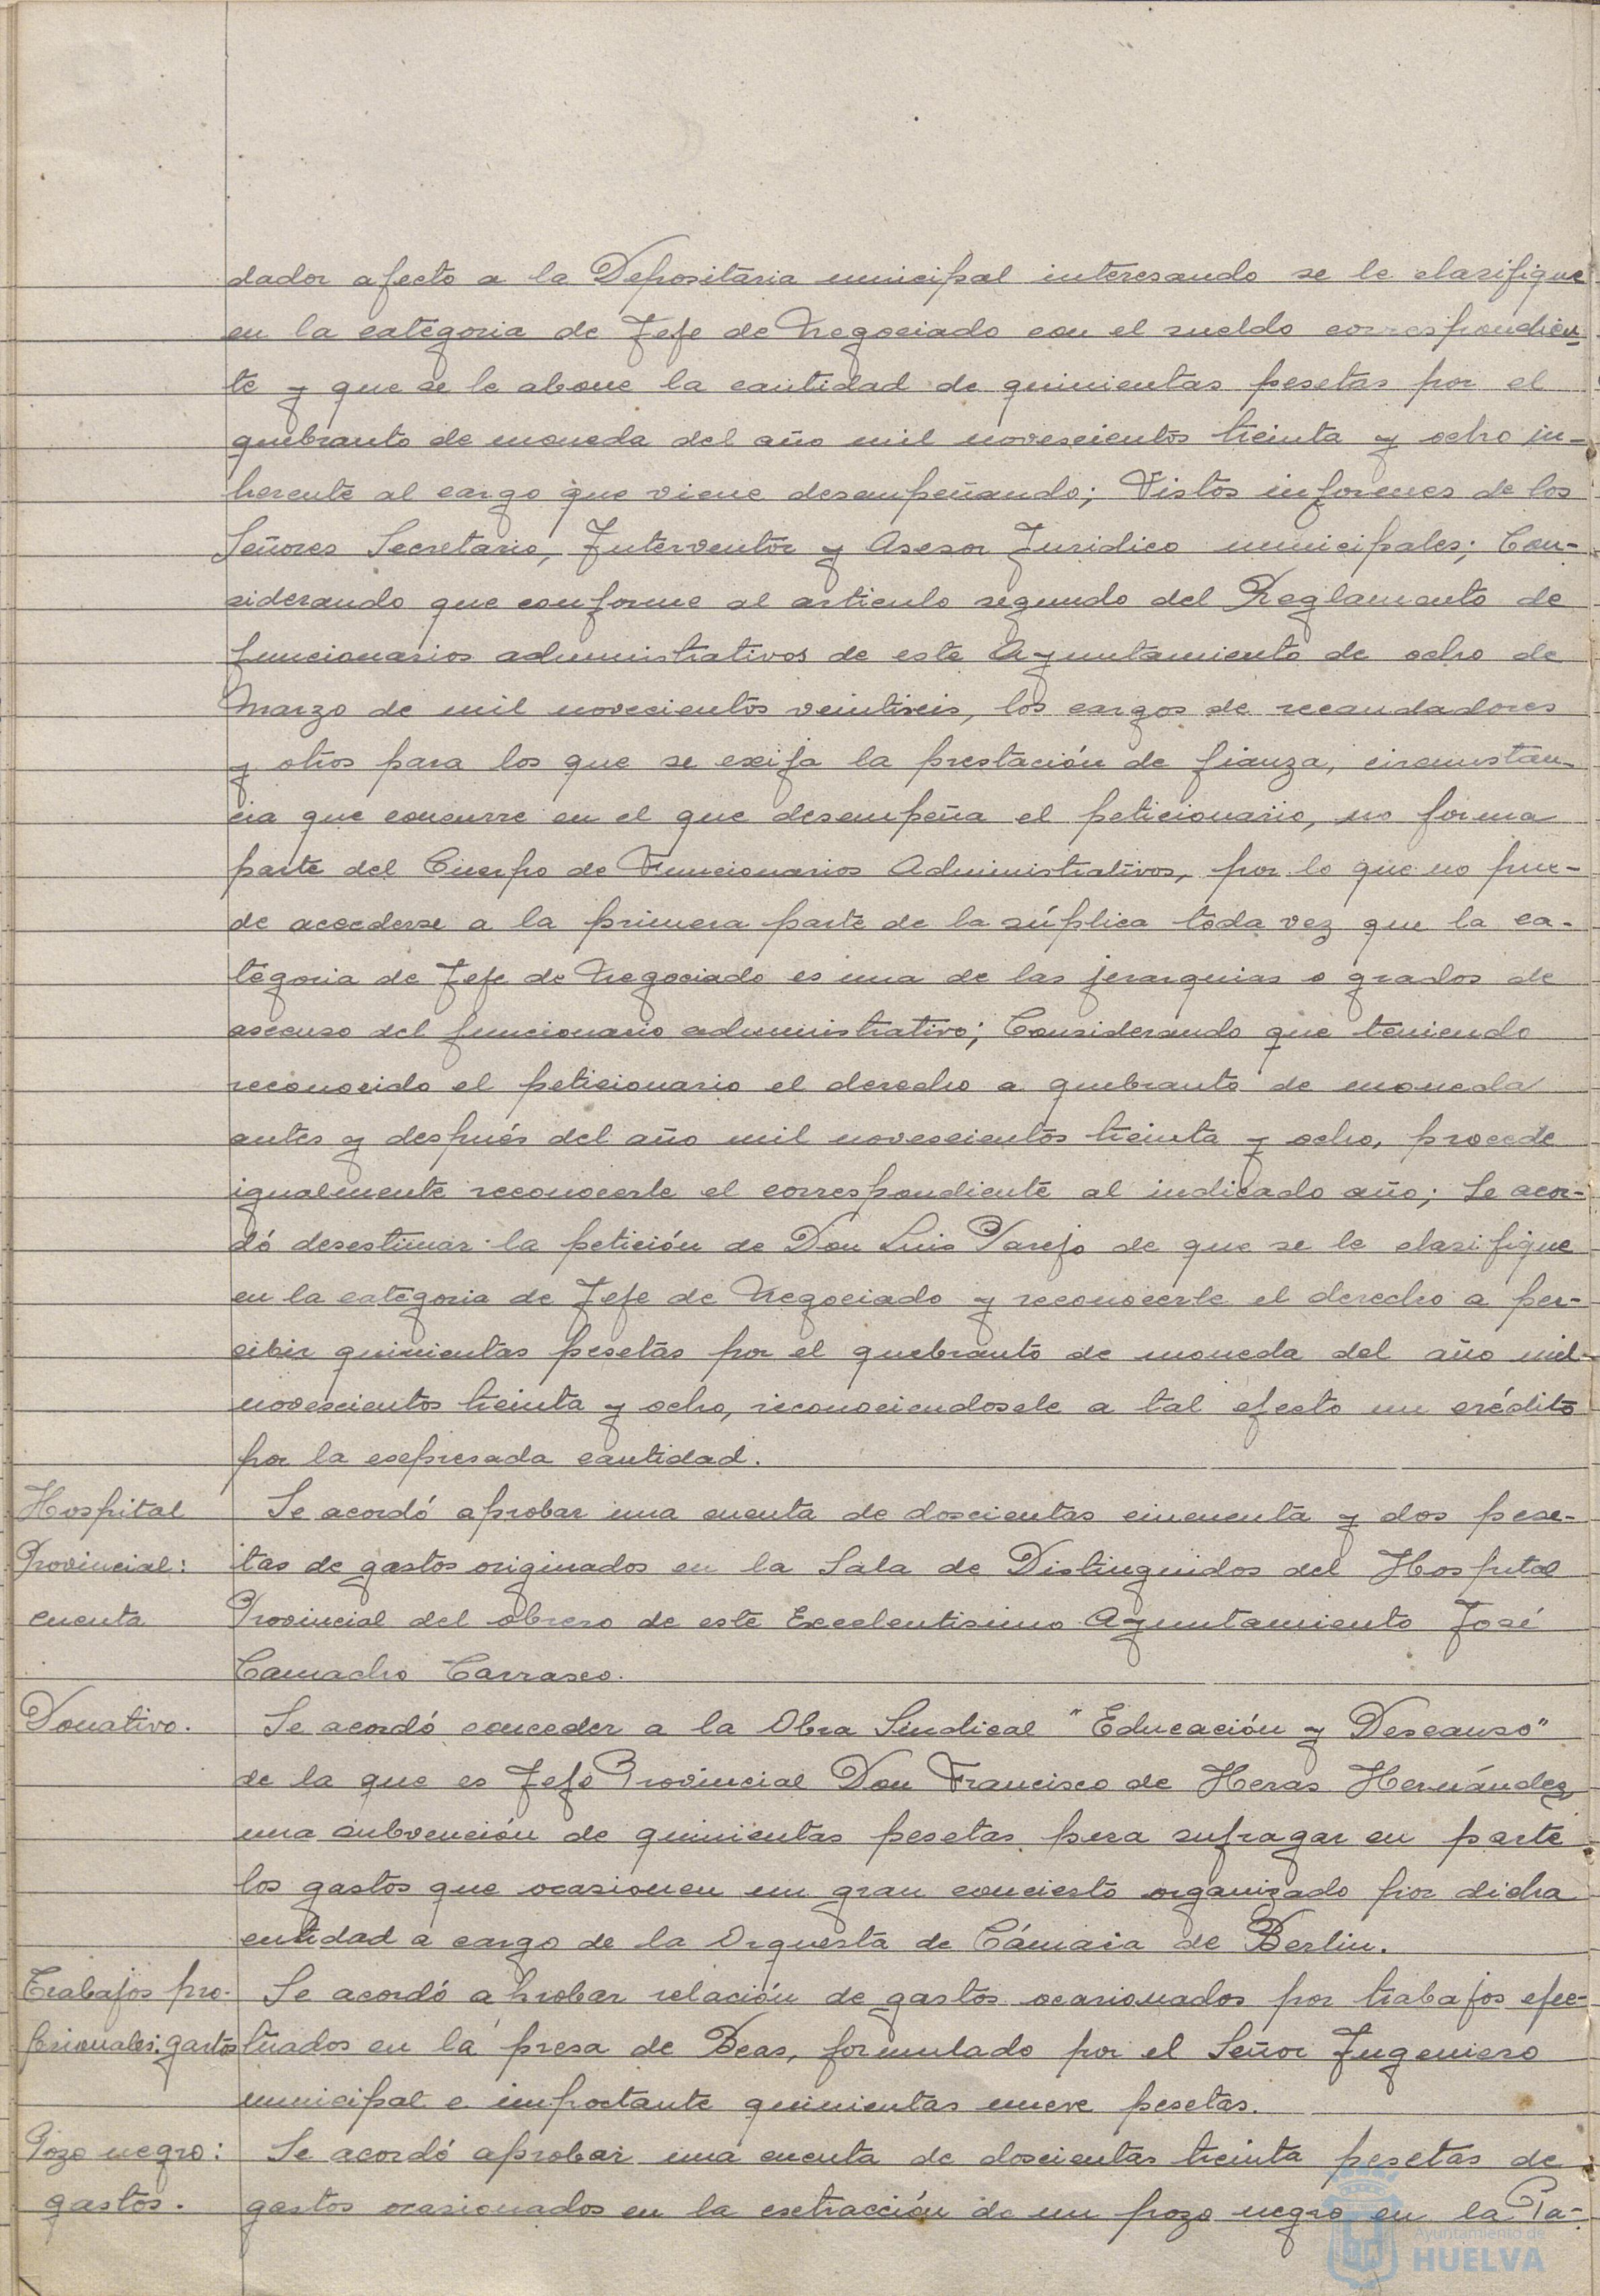 dador afecto a la Depositaria municipal interesando se le clasifique
en la categoria de Jefe de Negociado con el sueldo correspondien-
te y que se le abone la cantidad de quinientas pesetas por el
quebranto de moneda del año mil novescientos treinta y ocho in-
herente al cargo que viene desempeñando; Vistos informes de los
Señores Secretario, Interventor y Asesor Juridico municipales; Con-
siderando que conforme al articulo segundo del Reglamento de
funcionarios administrativos de este Ayuntamiento de ocho de
Marzo de mil novecientos veintiseis, los cargos de recaudadores
y otros para los que se exija la prestación de fianza, circunstan-
cia que concurre en el que desempeña el peticionario, no forma
parte del Cuerpo de Funcionarios Administrativos, por lo que no pue-
de accederse a la primera parte de la súplica toda vez que la ca-
tegoria de Jefe de Negociado es una de las jerarquias o grados de
ascenso del funcionario administrativo; Considerando que teniendo
reconocido el peticionario el derecho a quebranto de moneda
antes y después del año mil novescientos treinta y ocho, procede
igualmente reconocerle el correspondiente al indicado año; Se acor-
dó desestimar la petición de Don Luis Parejo de que se le clasifique
en la categoria de Jefe de Negociado y reconocerle el derecho a per-
cibir quinientas pesetas por el quebranto de moneda del año mil
novescientos treinta y ocho, reconociendosele a tal efecto un crédito
por la expresada cantidad.
Hospital
Provincial:
cuenta
Se acordó aprobar una cuenta de doscientas cincuenta y dos pese-
tas de gastos originados en la Sala de Distinguidos del Hospital
Provincial del obrero de este Excelentisimo Ayuntamiento José
Camacho Carrasco.
Donativo.
Se acordó conceder a la Obra Sindical "Educación y Descanso"
de la que es Jefe Provincial Don Francisco de Heras Hernández
una subvención de quinientas pesetas para sufragar en parte
los gastos que ocasionen un gran concierto organizado por dicha
entidad a cargo de la Orquesta de Cámara de Berlin.
Trabajos pro-
fesionales: gastos
Se acordó aprobar relación de gastos ocasionados por trabajos efec-
tuados en la presa de Beas, formulado por el Señor Ingeniero
municipal e importante quinientas nueve pesetas.
Pozo negro:
gastos.
Se acordó aprobar una cuenta de doscientas treinta pesetas de
gastos ocasionados en la extracción de un pozo negro en la Pa-
Ayuntamiento de
HUELVA